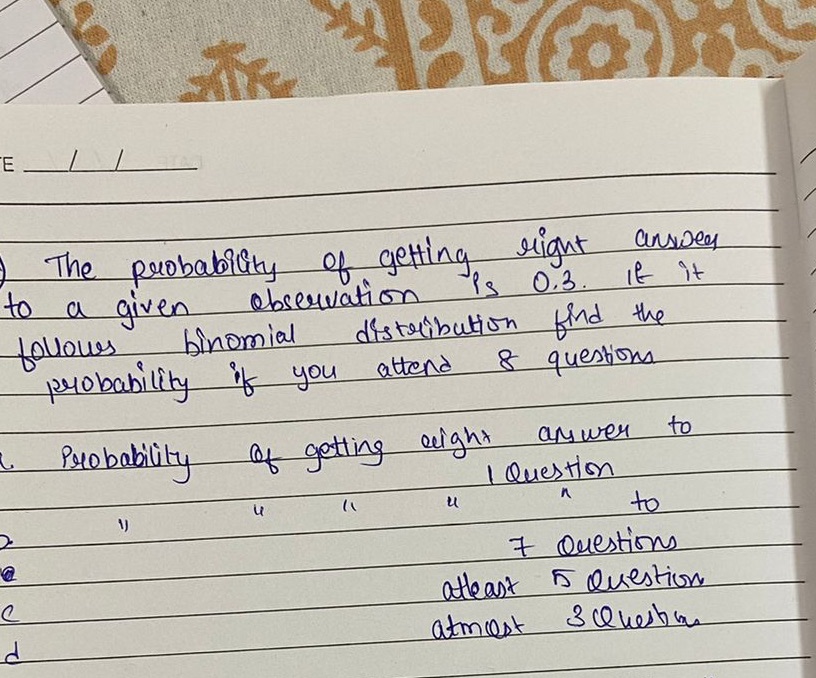 TE / /
) The probability of getting right answer
to a given observation is 0.3. if it
follows binomial distribution find the
probability if you attend 8 questions
Probability of getting right answer to
1 Question
" " " " " to
7 Questions
atleast 5 Question
c
atmost 3 Questions
d